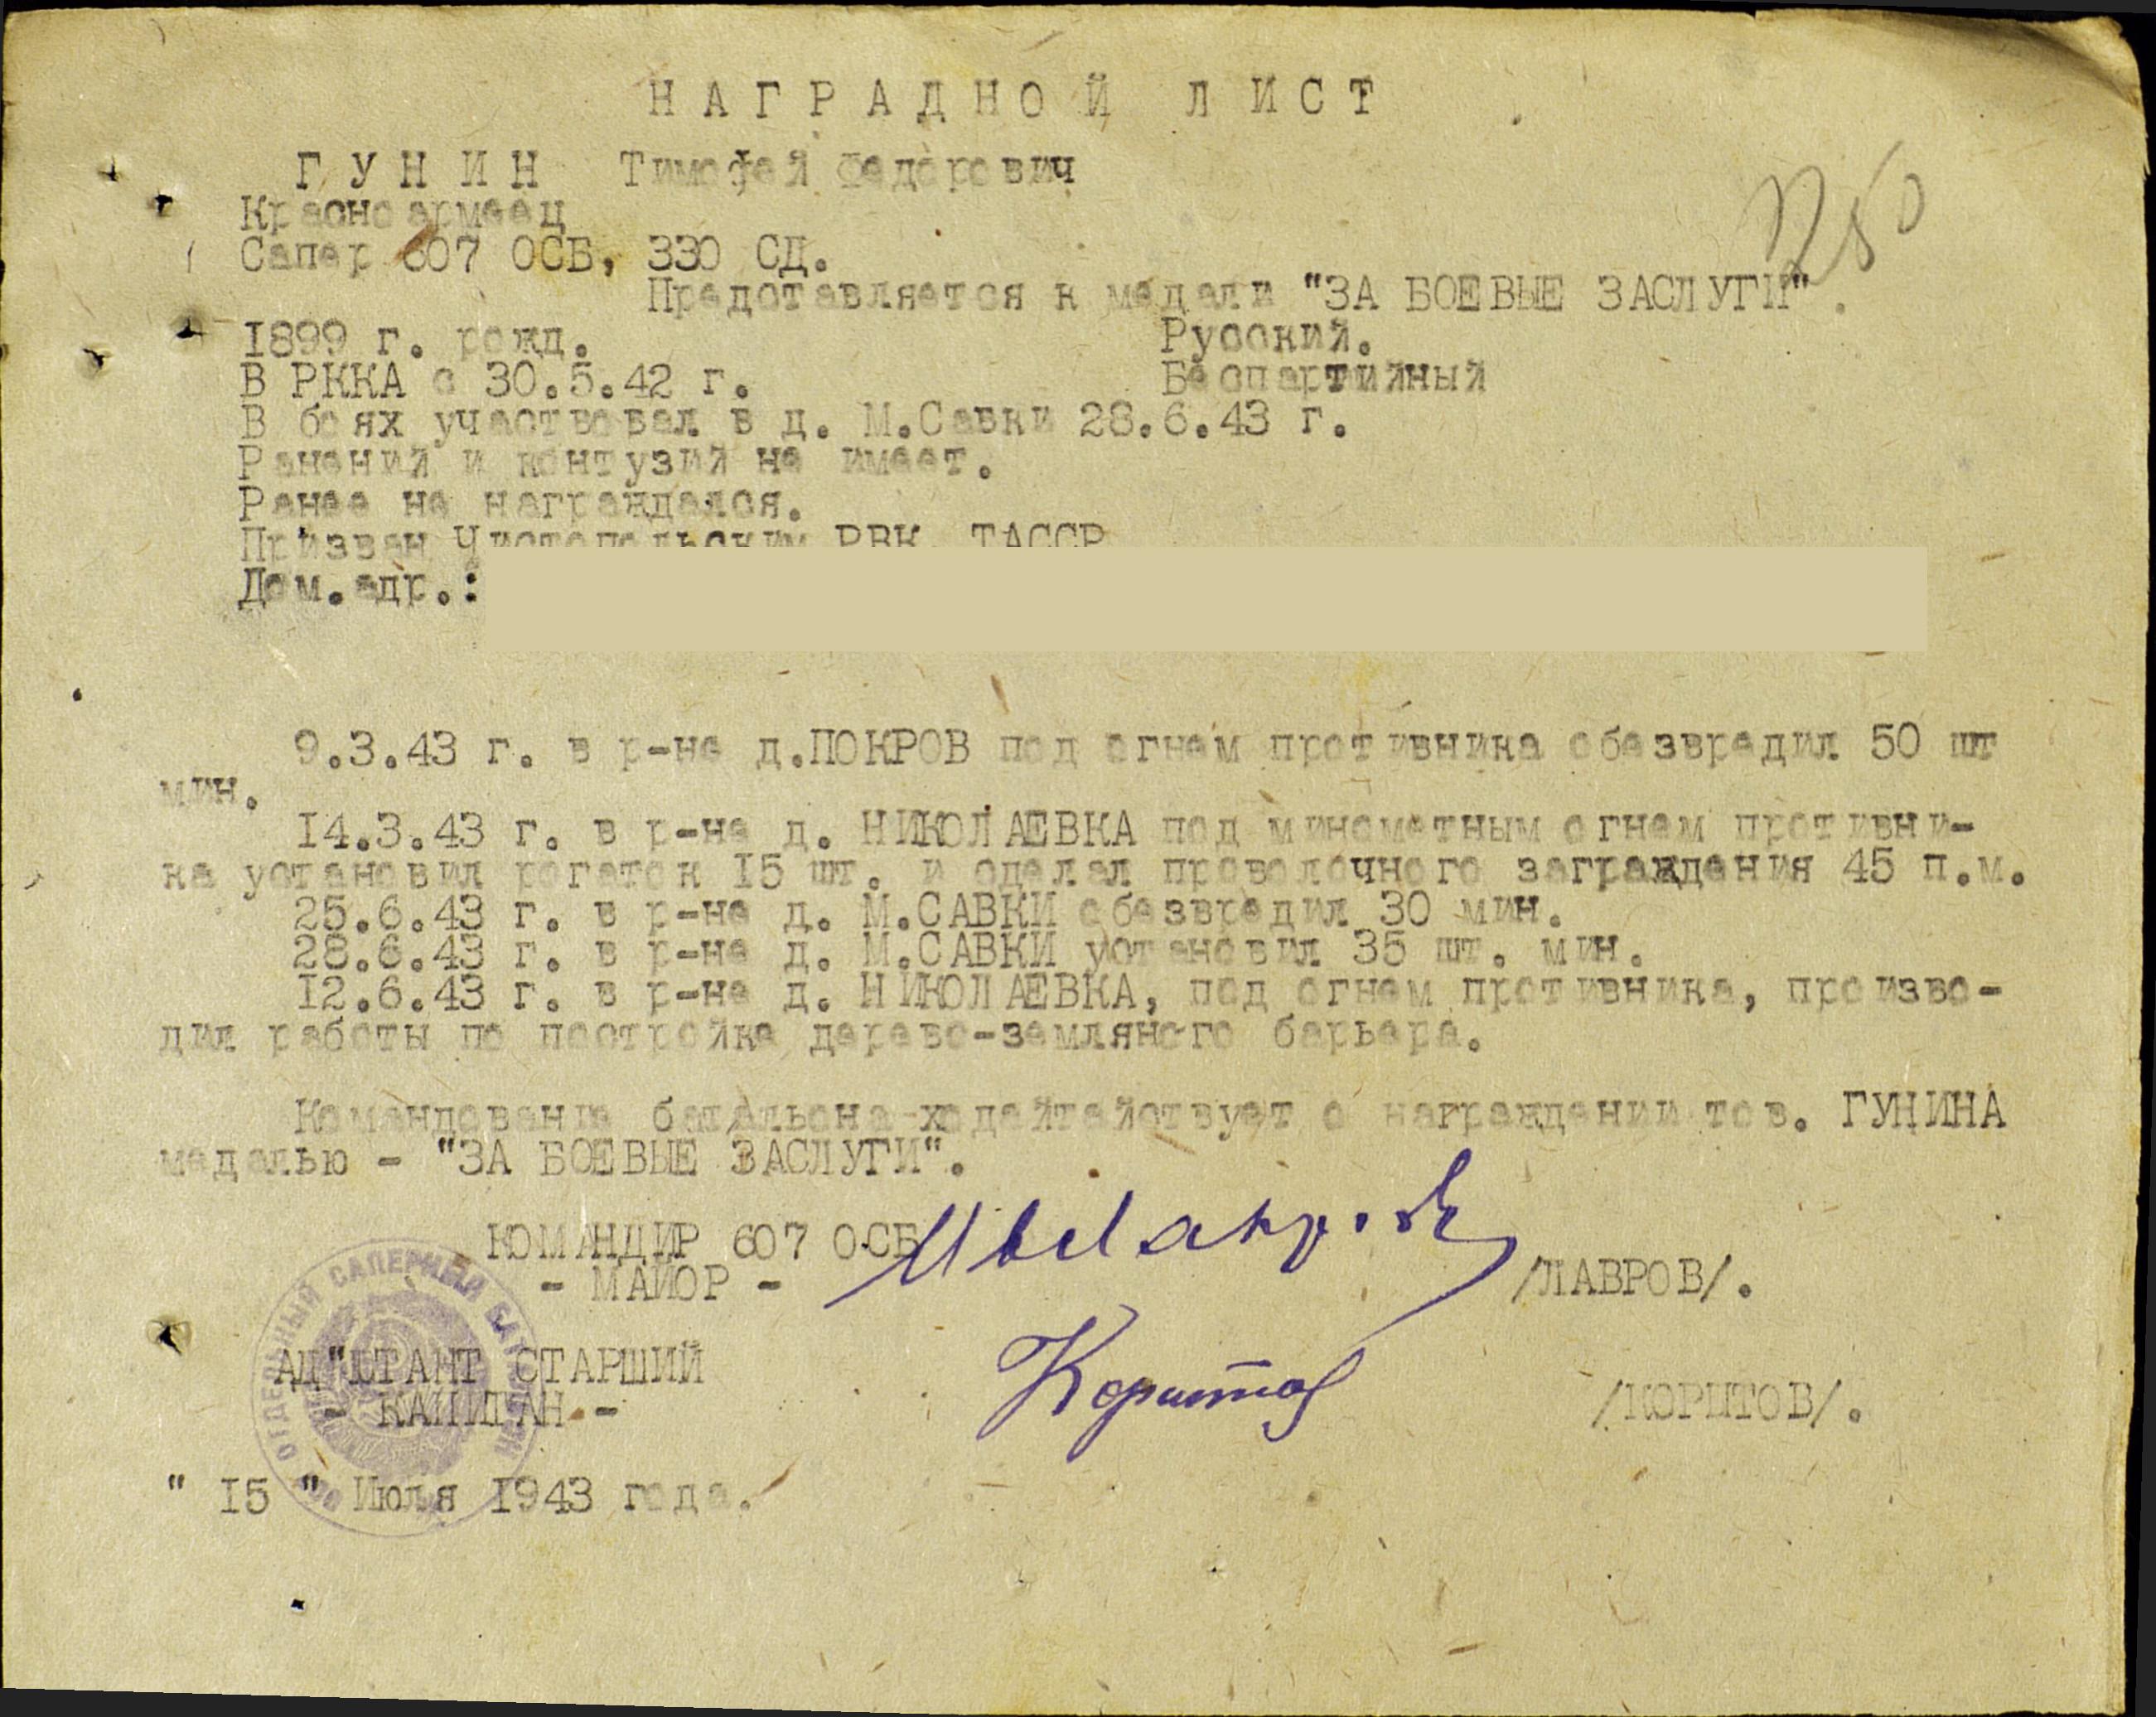 НАГРАДНОЙ ЛИСТ
250
ГУНИН Тимофей Федорович
Красноармеец
Сапер 607 ОСБ, 330 СД.
Представляется к медали "ЗА БОЕВЫЕ ЗАСЛУГИ".
1899 г. рожд. Русский.
В РККА с 30.5.42 г. Беспартийный
В боях участвовал в д. М.Савки 28.6.43 г.
Ранений и контузий не имеет.
Ранее не награждался.
Призван Чистопольским РВК, ТАССР
Дом.адр.:
9.3.43 г. в р-не д.ПОКРОВ под огнем противника обезвредил 50 шт
мин.
14.3.43 г. в р-не д. НИКОЛАЕВКА под минометным огнем противни-
ка установил рогаток 15 шт. и сделал проволочного заграждения 45 п.м.
25.6.43 г. в р-не д. М.САВКИ обезвредил 30 мин.
28.6.43 г. в р-не д. М.САВКИ установил 35 шт. мин.
12.6.43 г. в р-не д. НИКОЛАЕВКА, под огнем противника, произво-
дил работы по постройке дерево-земляного барьера.
Командование батальона ходайтайствует о награждении тов. ГУНИНА
медалью - "ЗА БОЕВЫЕ ЗАСЛУГИ".
КОМАНДИР 607 ОСБ
- МАЙОР -
/ЛАВРОВ/.
АД"ЮТАНТ СТАРШИЙ
- КАПИТАН -
Коритов
/КОРИТОВ/.
ОТДЕЛЬНЫЙ САПЕРНЫЙ БАТАЛЬОН
" 15 " Июля 1943 года.